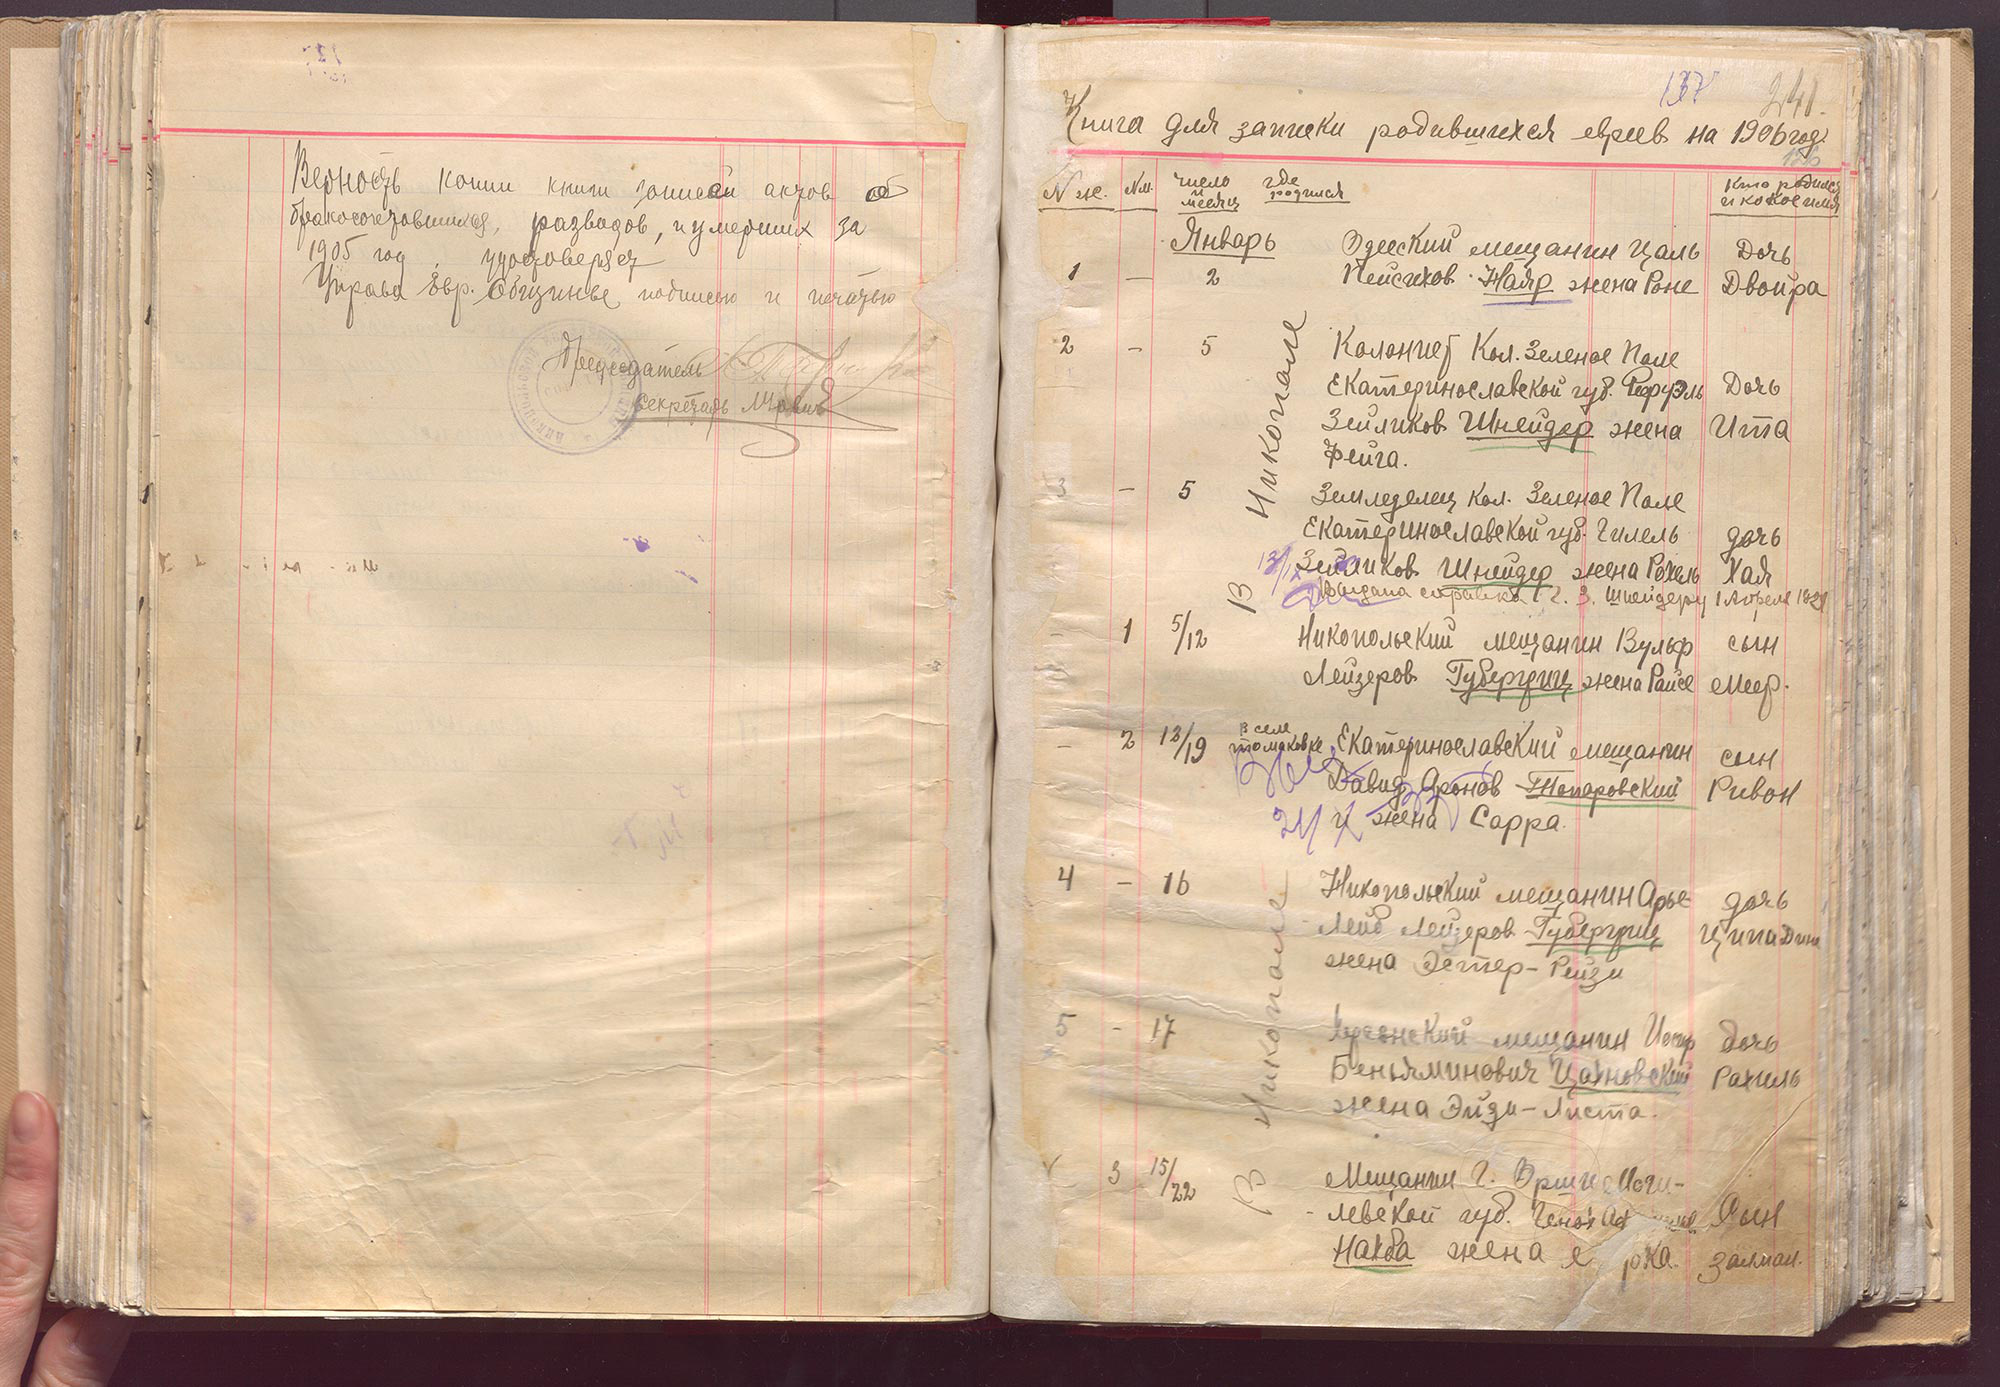 Верность копии книги записей актов об
бракосочетавшихся, разводов, и умерших за
1905 год удостоверяет
Управа Евр. Общины подписью и печатью
Председатель
Секретарь
137 241.
Книга для записки родившихся евреев на 1906 год.
136
N ж. N м. число и месяц где родился Кто родился и какое имя
Январь Одесский мещанин Цаль Дочь
1 — 2 Пейсихов Наяр жена Роне Двойра
В Никополе
2 — 5 Колонист Кол. Зеленое Поле
Екатеринославской губ. Рефуэль Дочь
Зеликов Шнейдер жена Ита
Фейга.
3 — 5 Земледелец Кол. Зеленое Поле
Екатеринославской губ. Гилель дочь
Зейликов Шнейдер жена Рохель Хая
Выдана справка Г. З. Шнейдеру 1 Апреля
— 1 5/12 Никопольский мещанин Вульф сын
Лейзеров Губергриц жена Райсе Меер.
— 2 12/19 В селе Томаковке Екатеринославский мещанин сын
Давид Аронов Топоровский Ривон
и жена Сарра.
В Никополе
4 — 16 Никопольский мещанин Арье- дочь
Лейб Лейзеров Губергриц Ципа Дина
жена Эстер-Рейзи
5 — 17 мещанин Дочь
Беньяминович Цахновский Рахиль
жена Эйди-Листа.
3 15/22 Мещанин г. Орши Моги-
левской губ. Сын
Накба жена Залман.